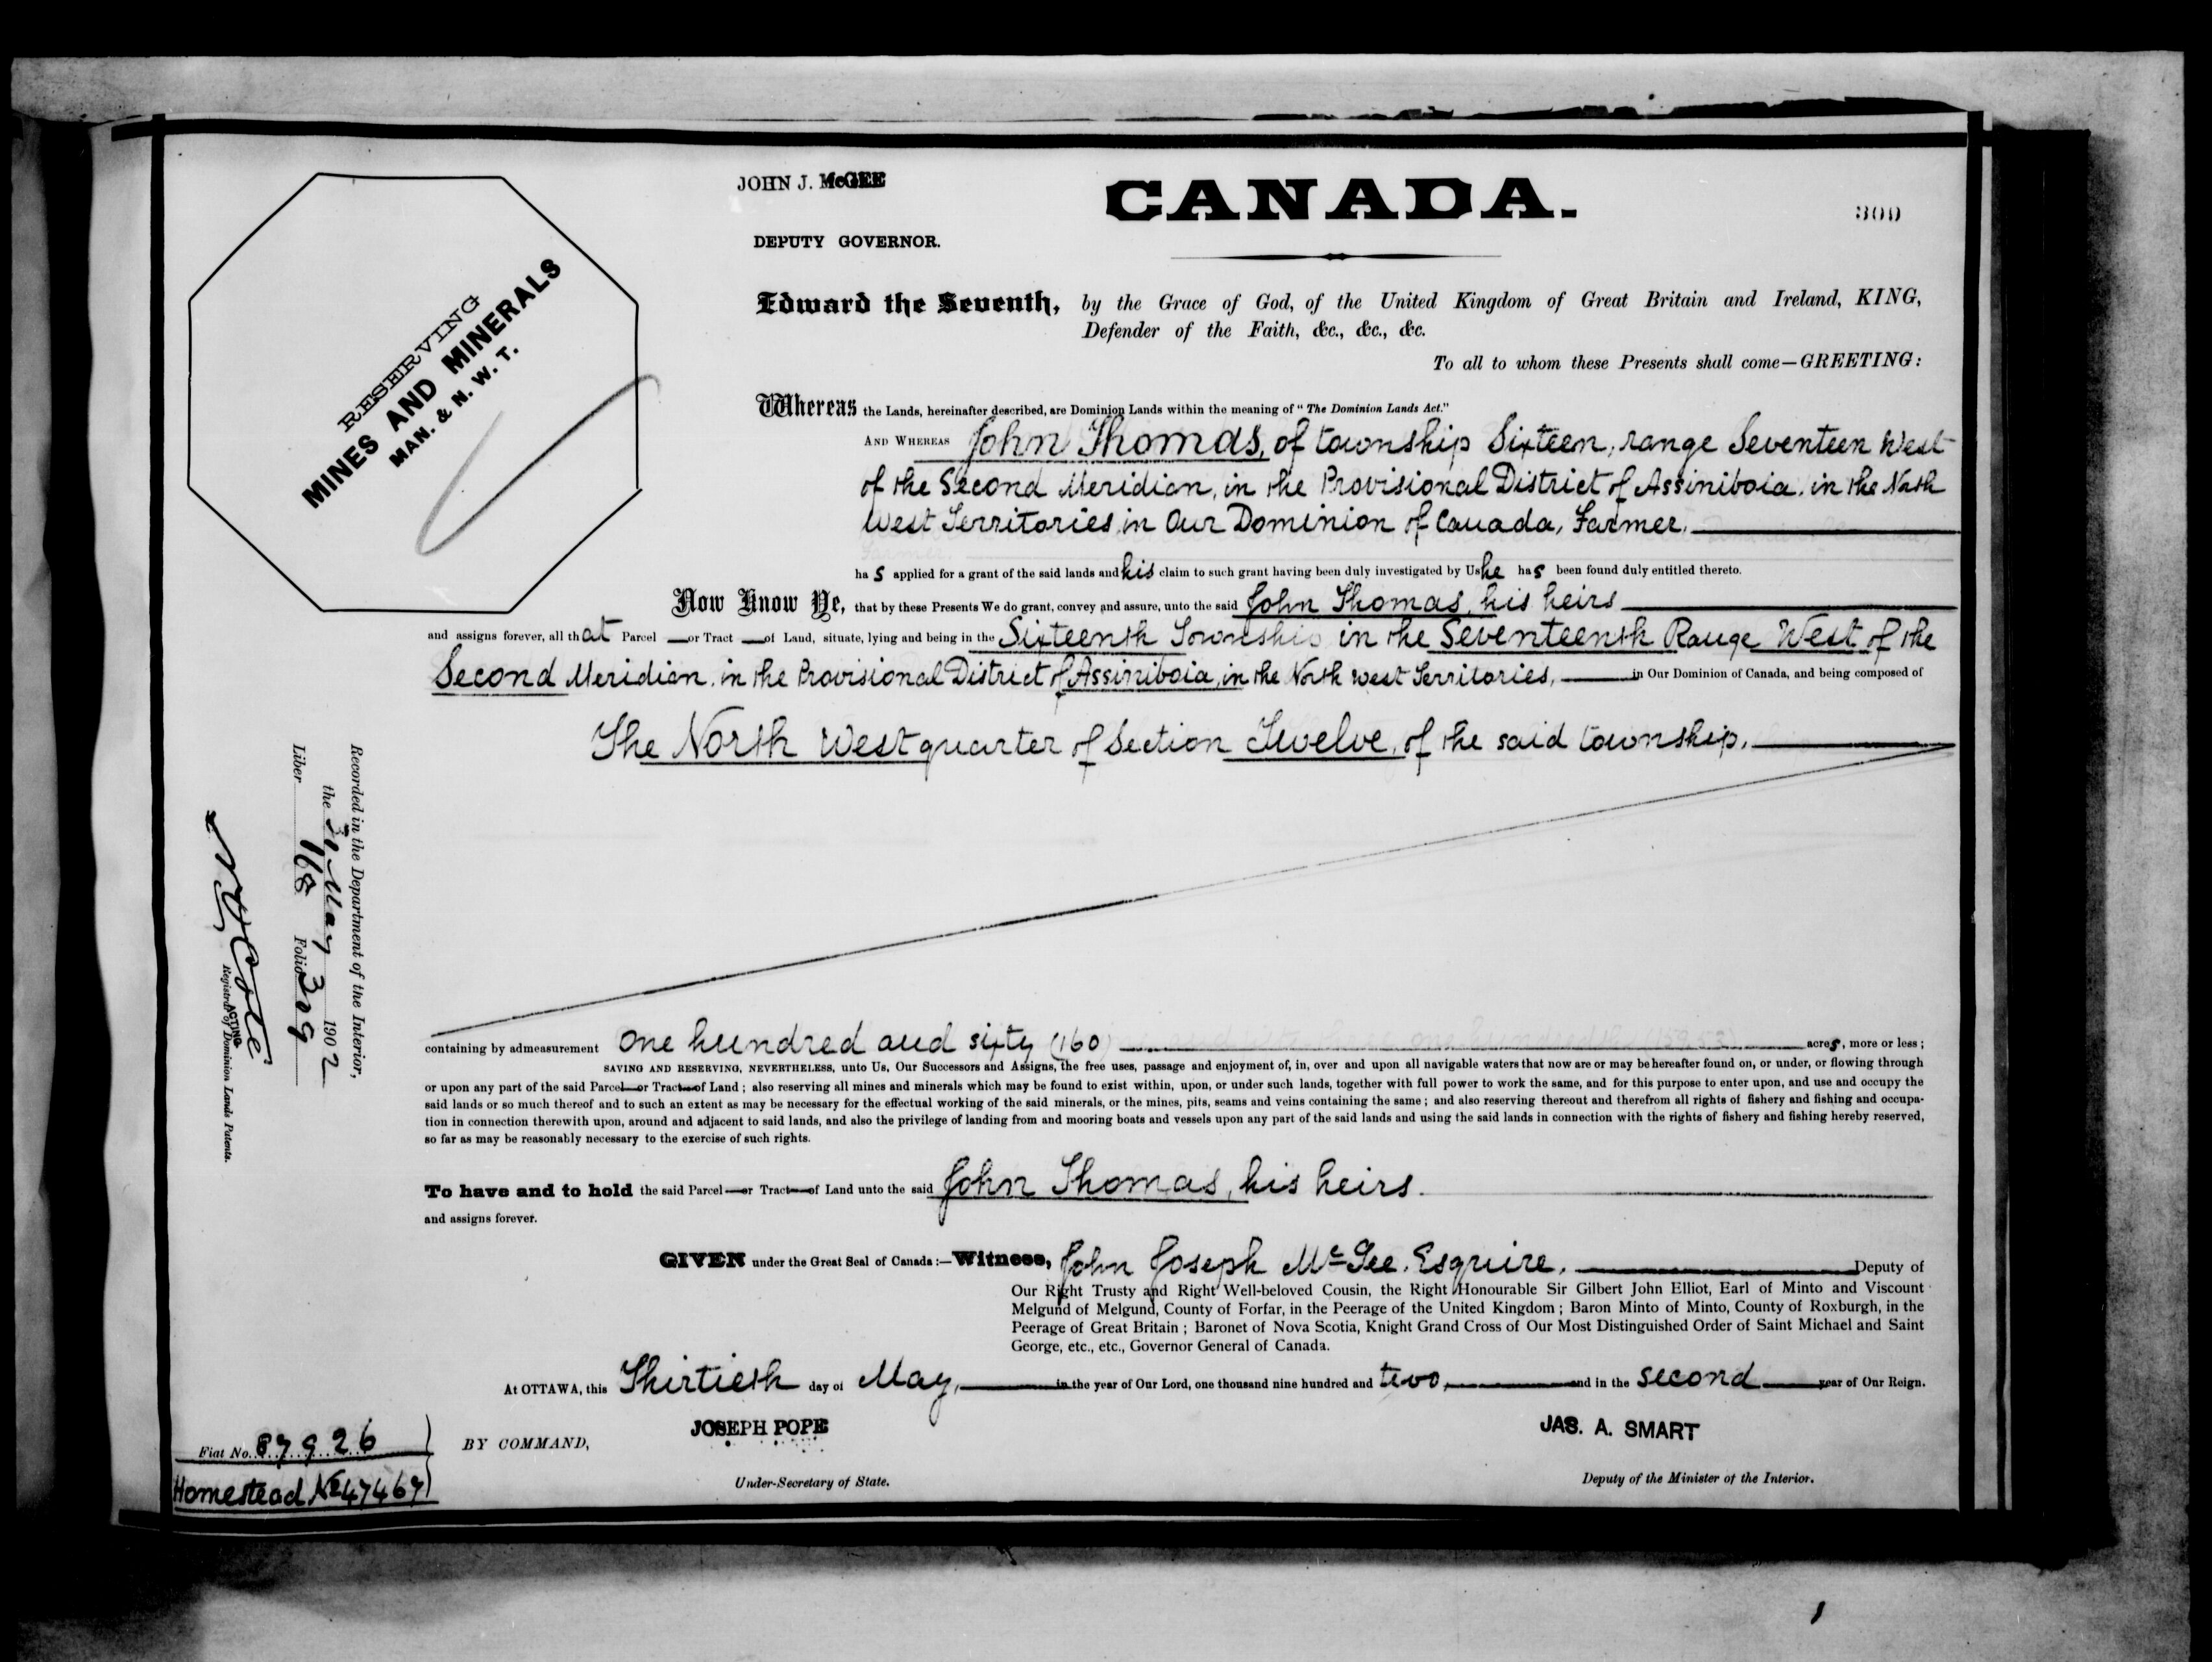 JOHN J. McGEE
CANADA.
300
DEPUTY GOVERNOR.
RESERVING
MINES AND MINERALS
MAN. & N. W. T.
Edward the Seventh, by the Grace of God, of the United Kingdom of Great Britain and Ireland, KING,
Defender of the Faith, &c., &c., &c.
To all to whom these Presents shall come—GREETING:
Whereas the Lands, hereinafter described, are Dominion Lands within the meaning of "The Dominion Lands Act."
AND WHEREAS John Thomas, of township Sixteen, range Seventeen West
of the Second Meridian, in the Provisional District of Assiniboia, in the North
West Territories, in Our Dominion of Canada, Farmer,
has applied for a grant of the said lands and his claim to such grant having been duly investigated by Us he has been found duly entitled thereto.
Now Know Ye, that by these Presents We do grant, convey and assure, unto the said John Thomas, his heirs
and assigns forever, all that Parcel or Tract of Land, situate, lying and being in the Sixteenth Township in the Seventeenth Range West of the
Second Meridian, in the Provisional District of Assiniboia, in the North West Territories, in Our Dominion of Canada, and being composed of
The North West quarter of Section Twelve, of the said township.
containing by admeasurement One hundred and sixty (160) acres, more or less;
SAVING AND RESERVING, NEVERTHELESS, unto Us, Our Successors and Assigns, the free uses, passage and enjoyment of, in, over and upon all navigable waters that now are or may be hereafter found on, or under, or flowing through
or upon any part of the said Parcel or Tract of Land; also reserving all mines and minerals which may be found to exist within, upon, or under such lands, together with full power to work the same, and for this purpose to enter upon, and use and occupy the
said lands or so much thereof and to such an extent as may be necessary for the effectual working of the said minerals, or the mines, pits, seams and veins containing the same; and also reserving thereout and therefrom all rights of fishery and fishing and occupa-
tion in connection therewith upon, around and adjacent to said lands, and also the privilege of landing from and mooring boats and vessels upon any part of the said lands and using the said lands in connection with the rights of fishery and fishing hereby reserved,
so far as may be reasonably necessary to the exercise of such rights.
To have and to hold the said Parcel or Tract of Land unto the said John Thomas, his heirs.
and assigns forever.
GIVEN under the Great Seal of Canada:—Witness, John Joseph McGee, Esquire, Deputy of
Our Right Trusty and Right Well-beloved Cousin, the Right Honourable Sir Gilbert John Elliot, Earl of Minto and Viscount
Melgund of Melgund, County of Forfar, in the Peerage of the United Kingdom; Baron Minto of Minto, County of Roxburgh, in the
Peerage of Great Britain; Baronet of Nova Scotia, Knight Grand Cross of Our Most Distinguished Order of Saint Michael and Saint
George, etc., etc., Governor General of Canada.
At OTTAWA, this Thirtieth day of May, in the year of Our Lord, one thousand nine hundred and two, and in the second year of Our Reign.
BY COMMAND,
JOSEPH POPE
Under-Secretary of State.
JAS. A. SMART
Deputy of the Minister of the Interior.
Recorded in the Department of the Interior,
the 31 May 1902
Liber 168 Folio 309
Coté
ACTING
Registrar of Dominion Lands Patents.
Fiat No. 87926
Homestead No 47467